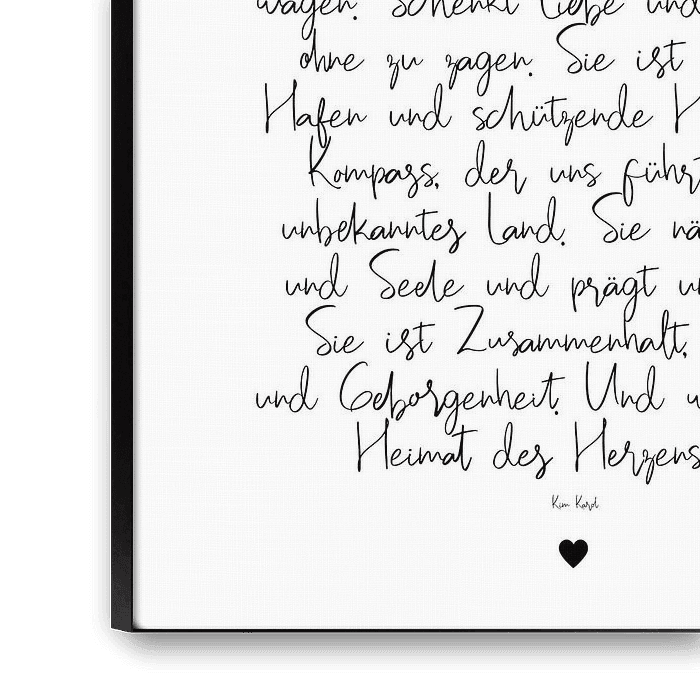 wagen. Schenkt Liebe und
ohne zu zagen. Sie ist
Hafen und schützende
Kompass, der uns führt
unbekanntes Land. Sie nä
und Seele und prägt un
Sie ist Zusammenhalt,
und Geborgenheit. Und u
Heimat des Herzens
Kim Karol